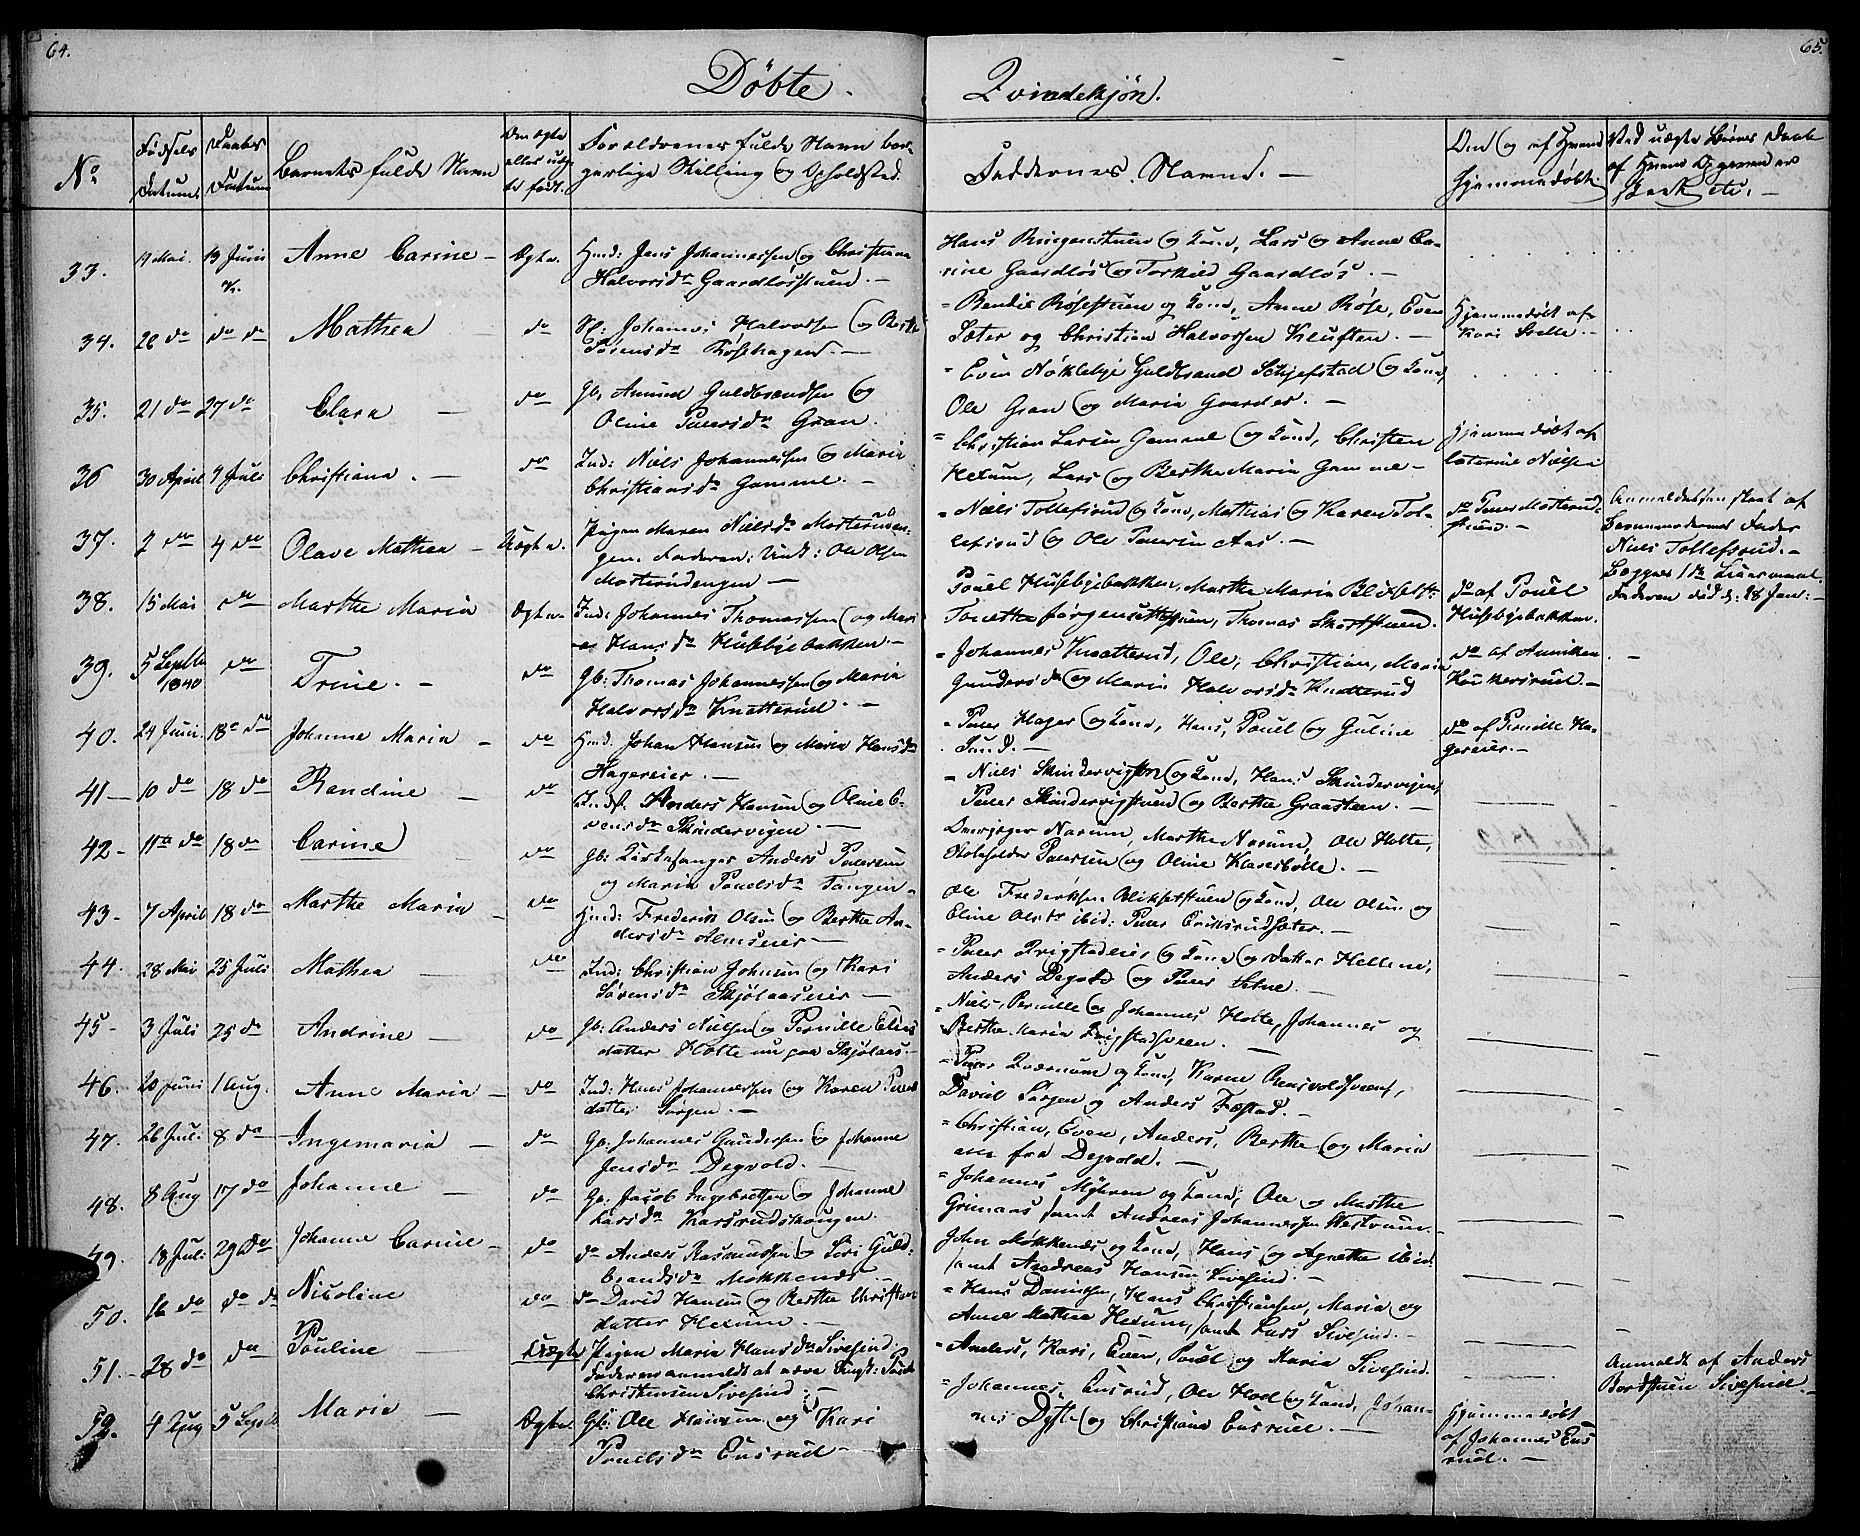 64.
65.
Døbte.
Qvindekjøn.
No
Fødsels Datum
Daabs Datum
Barnets fulde Navn
Om ægte eller uæg- te født.
Forældrenes fulde Navn bor- gerlige Stilling og Opholdsted.
Faddernes Navne. —
Om og af Hvem hjemmedøbt.
Ved uægte Børns Daab
33. 4 Mai. 13 Juni Anne Carine — Ægte. Hmd: Jens Johannessen og Christiana
Halvorsdr Gaardløsstuen. —
Hans Ringenstuen og Kone, Lars og Anne Ca-
rine Gaardløs og Torkild Gaardløs. —
34. 26 do do do Mathea do Johannes Halvorsen og Berthe
Sørensdr Røsehagen. —
Bendix Røsestuen og Kone, Anne Røse, Even
Sæter og Christian Halvorsen Kluften. —
Hjemmedøbt af
Kari
35. 21 do 27 do Clara — do Gb: Amund Guldbrandsen og
Oline Paulsdr Gran.
Even Nøklebye Guldbrand Schjefstad og Kone,
Ole Gran og Maria Gaarder. —
36 30 April 4 Juli Christiana. — do Ind: Niels Johannessen og Maria
Christiansdr Gamme. —
Christian Larsen Gamme og Kone, Christen
Hexum, Lars og Berthe Maria Gamme —
Hjemmedøbt af
Catrine Nielsen
37. 2 do 4 do Olave Mathea — Uægte. Pigen Maren Nielsdr Mosteruden-
gen. Faderen: Unk: Ole Olsen
Mosterudengen —
Niels Tollefsrud og Kone, Mathias og Karen Tol-
lefsrud og Ole Paulsen Aas. —
Anmeldelsen skeet af
Barnemoderens Fader
Niels Tollefsrud. —
38. 15 Mai do Marthe Maria Ægte. Ind: Johannes Thomassen og Mari
Hansdr Husebyebakken —
Pouel Husebyebakken, Marthe Maria
Thomas
do af Pouel
Husebyebakken.
39. 5 Septbr 1840 do Trine. — do Gb: Thomas Johannessen og Maria
Halvorsdr Knatterud. —
Johannes Knatterud, Ole, Christian, Maria
Gundersdr og Marin Halvorsdr Knatterud
do af Anniken
40. 24 Juni. 18de do Johanne Maria — do Hmd. Johan Hansen og Maria Hansdr
Hagereier. —
Peder Hager og Kone, Hans, Pouel og Guline
Sund. —
do af Pernille Ha-
gereier. —
41 — 10 do 18 do Randine — do Indst. Anders Hansen og Oline E-
vensdr Skindervigen. —
Niels Skindervigstuen og Kone, Hans Skindervigen,
Peder Skindervigstuen og Berthe Graasteen. —
42 - 11te do 18 do Carine do Gb: Kirkesanger Anders Pedersen
og Maria Pouelsdr Tangen —
Narum, Marthe Narum, Ole Holte,
Skoleholder Petersen og Oline Klaresbølle. —
43 - 7 April 18 do Marthe Maria — do Hmd: Frederik Olsen og Berthe An-
dersdr Almseier —
Ole Frederiksen Blikset­stuen og Kone, Ole Olsen og
Eline Olsdr ibid: Peder Eriksrudsæter. —
44. 28 Mai 25 Juli Mathea — do Ind: Christian Johnsen og Kari
Sørensdr Skjølaaseier —
Peder Qvigstadeier og Kone og datter Hellene,
Anders Degvold og Peder
45 - 3 Juli 25 do Andrine — do Gb: Anders Nielsen og Pernille Elias
datter Holte nu paa Skjølaas. —
Niels, Pernille og Johannes Holte, Johannes og
Berthe Maria Qvigstadsveen. —
46. 20 Juni 1 Aug. Anne Maria — do Ind: Hans Johannessen og Karen
datter Sørgen. —
Peder Qværnum og Kone, Karen
David Sørgen og Anders Fæstad. —
47. 26 Juli 8 do Ingemaria — do Gb. Johannes Gundersen og Johanne
Jensdr Degvold. —
Christian, Even, Anders, Berthe og Maria
alle fra Degvold. —
48. 8 Aug 17 do Johanne — do Gb. Jacob Ingebretsen og Johanne
Larsdr Karsrudshougen.
Johannes Myhren og Kone, Ole og Marthe
Grimaas samt Andreas Johannessen Westrum. —
49. 18 Juli 29 do Johanne Carine — do do Anders Rasmussen og Siri Guld-
brandsdr Mokkenes. —
John Mokkenes og Kone, Hans og Agnethe ibid.
samt Andreas Hansen Sivesind. —
50. 16 do do do Nicoline do do David Hansen og Berthe Christians
datter Hexum. —
Hans Hans Christiansen, Maria og
Anne Mathea Hexum, samt Lars Sivesind. —
51. — 28 do do Pauline — Uægte Pigen Maria Hansdr Sivesind.
Faderen anmeldt at være Ungk:
Christensen Sivesind: —
Anders, Kari, Even, Pouel og Maria Sivesind.
Anmeldt af Anders
Bordstuen Sivesind. —
52. 4 Aug 5 Septbr Maria — Ægte. Gb: Ole Hansen og Kari
Pouelsdr Ensrud —
Johannes Ensrud, Ole Hoel og Kone, Johan-
nes Dytte og Christiane Ensrud. —
Hjemmedøbt
af Johannes Ens
rud. —